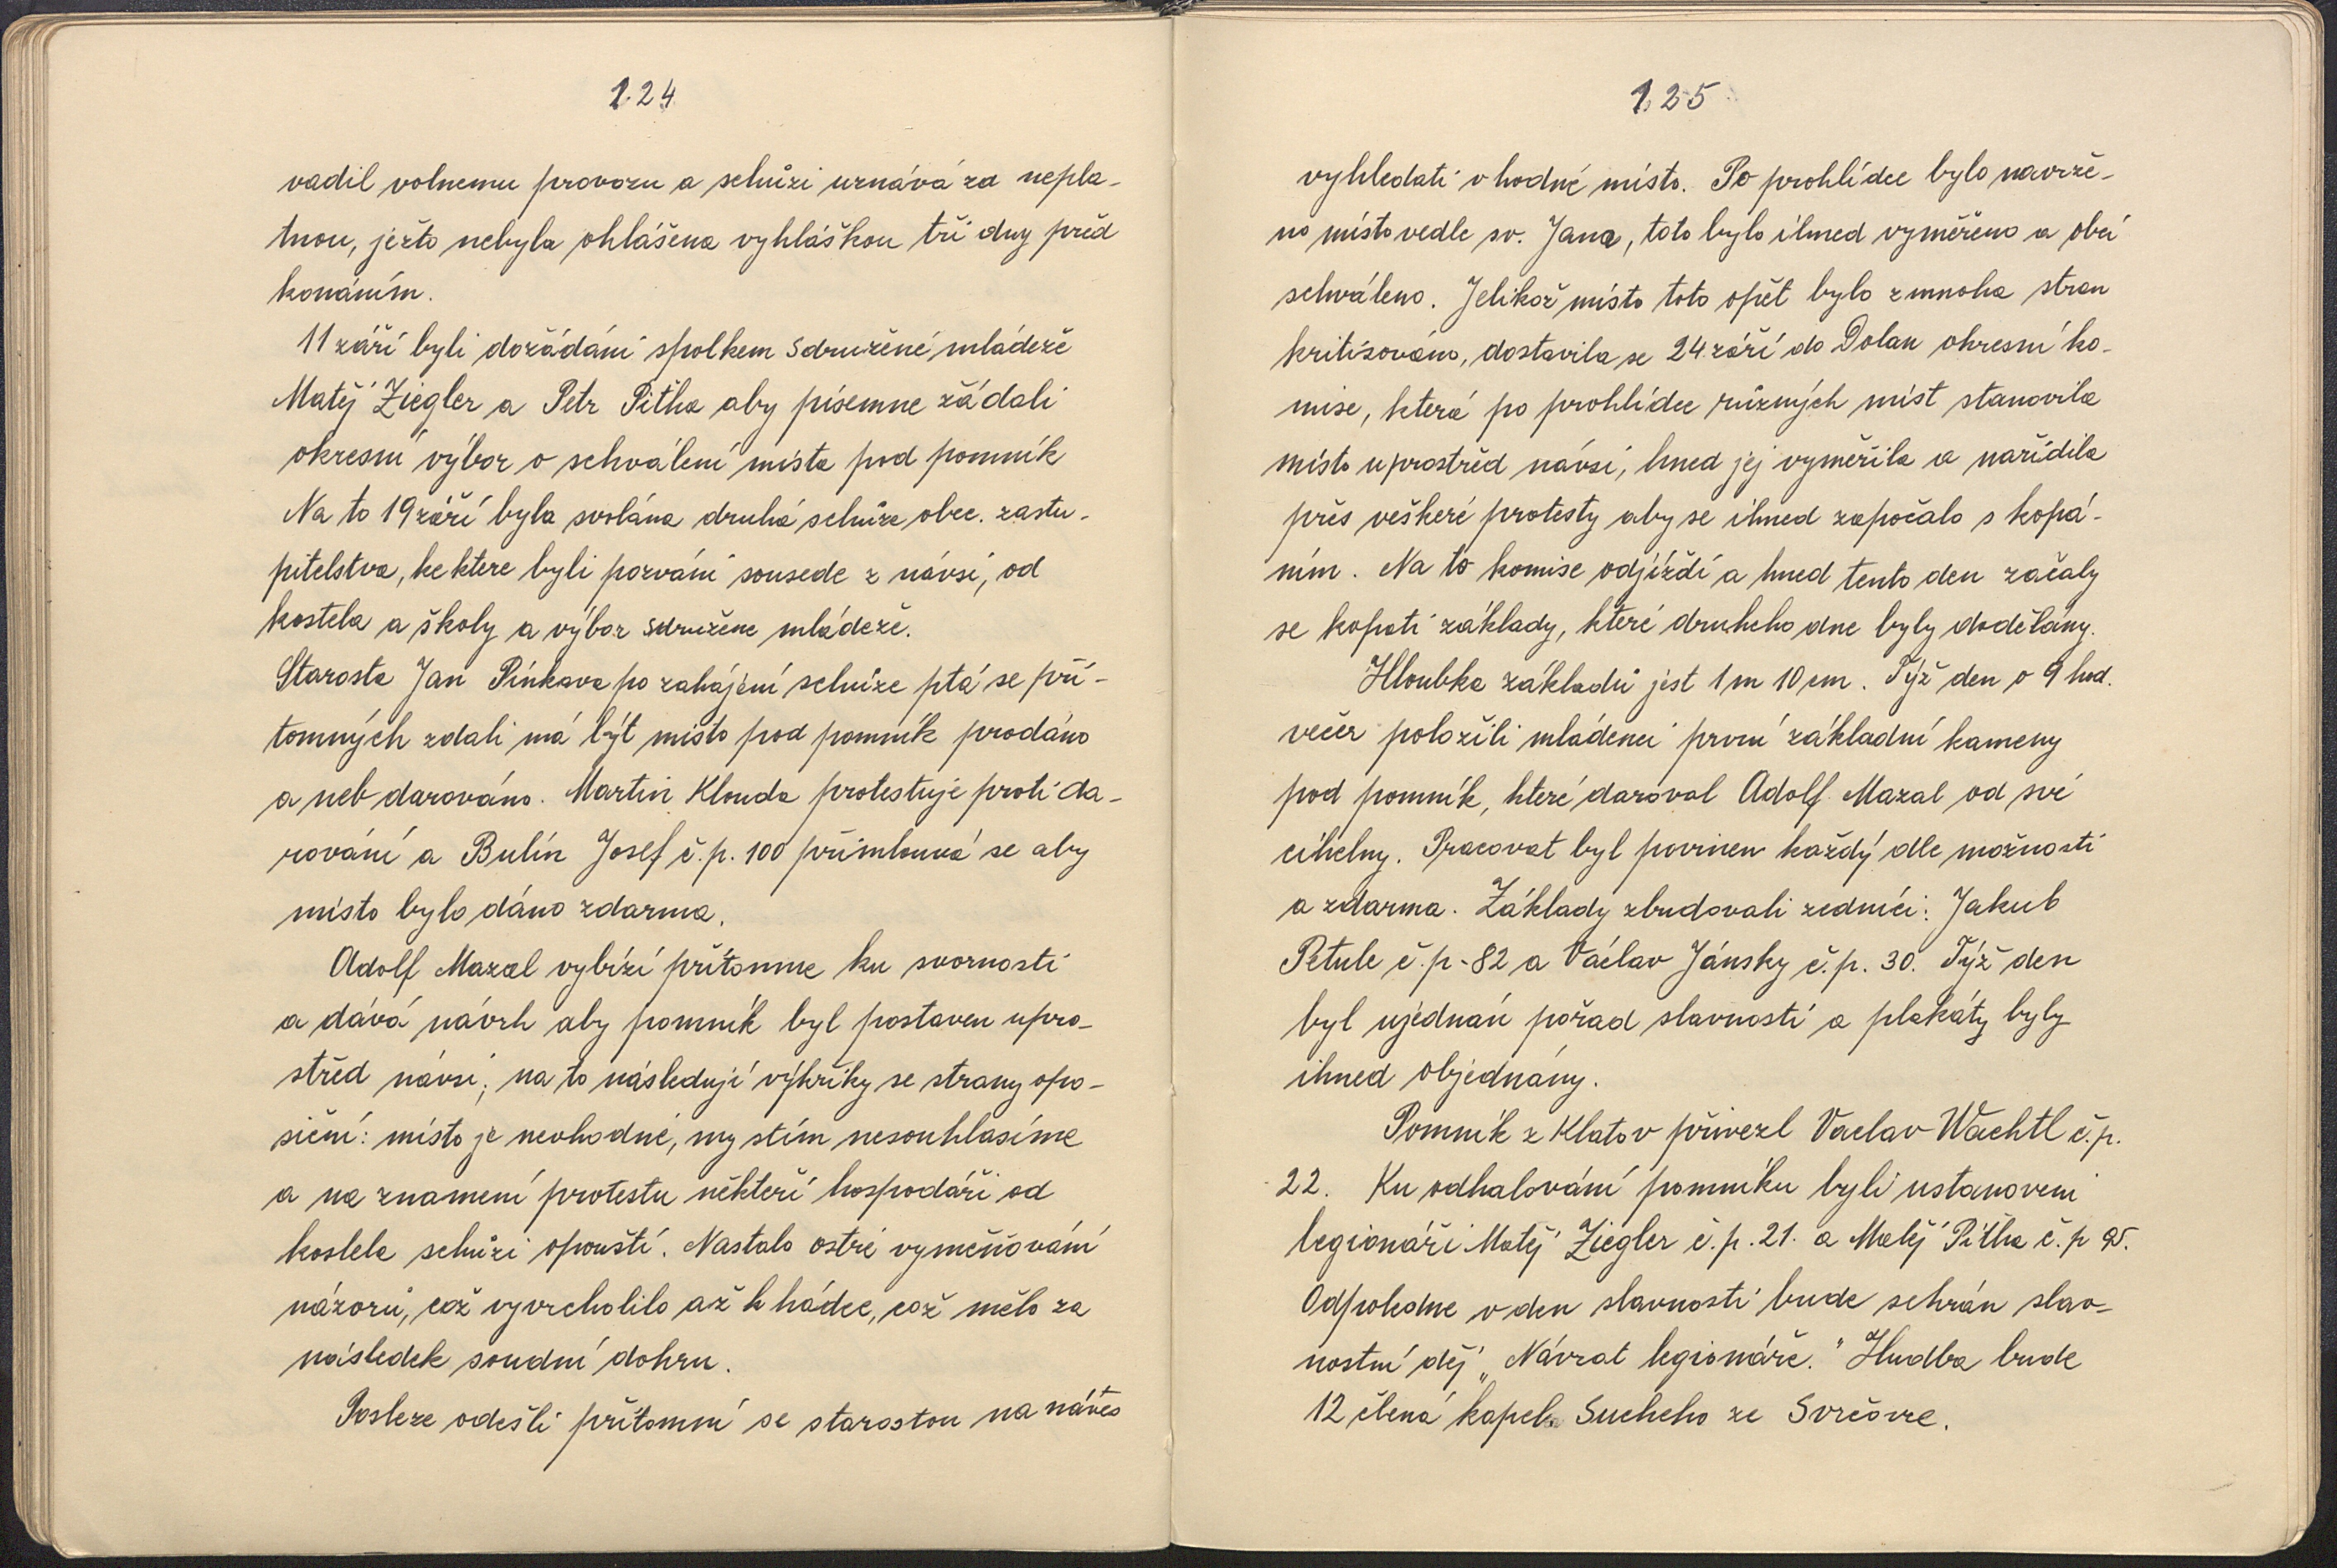 124
vadil volnemu provozu a schůzi uznává za nepla-
tnou, ježto nebyla ohlášena vyhláškou tři dny před
konáním.
11 září byli dožádáni spolkem Sdružené mládeže
Matěj Ziegler a Petr Pitha aby písemne žádali
okresní výbor o schválení místa pod pomník
Na to 19 září byla svolána druhá schůze obec. zastu-
pitelstva, ke ktere byli pozváni sousede z návsi, od
kostela a školy a výbor Sdružene mládeže.
Starosta Jan Pinkava po zahájení schůze ptá se pří-
tomných zdali má být místo pod pomník prodáno
a neb darováno. Martin Klouda protestuje proti da-
rování a Bulín Josef č.p. 100 přimlouvá se aby
místo bylo dáno zdarma.
Adolf Mazal vybízí přítomne ku svornosti
a dává návrh aby pomník byl postaven upro-
střed návsi; na to následují výkřiky se strany opo-
siční: místo je nevhodné, my stím nesouhlasíme
a na znamení protestu někteří hospodáři od
kostela schůzi opouští. Nastalo ostré vyměňování
názorů, což vyvrcholilo až k hádce, což mělo za
následek soudní dohru.
Posleze odešli přítomní se starostou na náves
125
vyhledati vhodné místo. Po prohlídce bylo navrže-
no místo vedle sv. Jana, toto bylo ihned vyměřeno a obcí
schváleno. Jelikož místo toto opět bylo z mnoha stran
kritisováno, dostavila se 24 září do Dolan okresní ko-
mise, která po prohlídce různých míst stanovila
místo uprostřed návsi, hned jej vyměřila a nařídila
přes veškeré protesty aby se ihned započalo s kopá-
ním. Na to komise odjíždí a hned tento den začaly
se kopati základy, které druheho dne byly dodělány.
Hloubka základů jest 1 m 10 cm. Týž den o 9 hod.
večer položili mládenci první základní kameny
pod pomník, které daroval Adolf Mazal od své
cihelny. Pracovat byl povinen každý dle možnosti
a zdarma. Základy zbudovali zedníci: Jakub
Petule č.p-82 a Václav Jánsky č.p. 30. Týž den
byl ujednán pořad slavnosti a plakáty byly
ihned objednány.
Pomník z Klatov přivezl Vaclav Wachtl č.p.
22. Ku odhalování pomníku byli ustanoveni
legionáři Matěj Ziegler č.p. 21. a Matěj Pitha č.p
Odpoledne v den slavnosti bude sehrán slav-
nostní děj „Návrat legionáře." Hudba bude
12 člená kapela Sucheho ze Svrčovce.